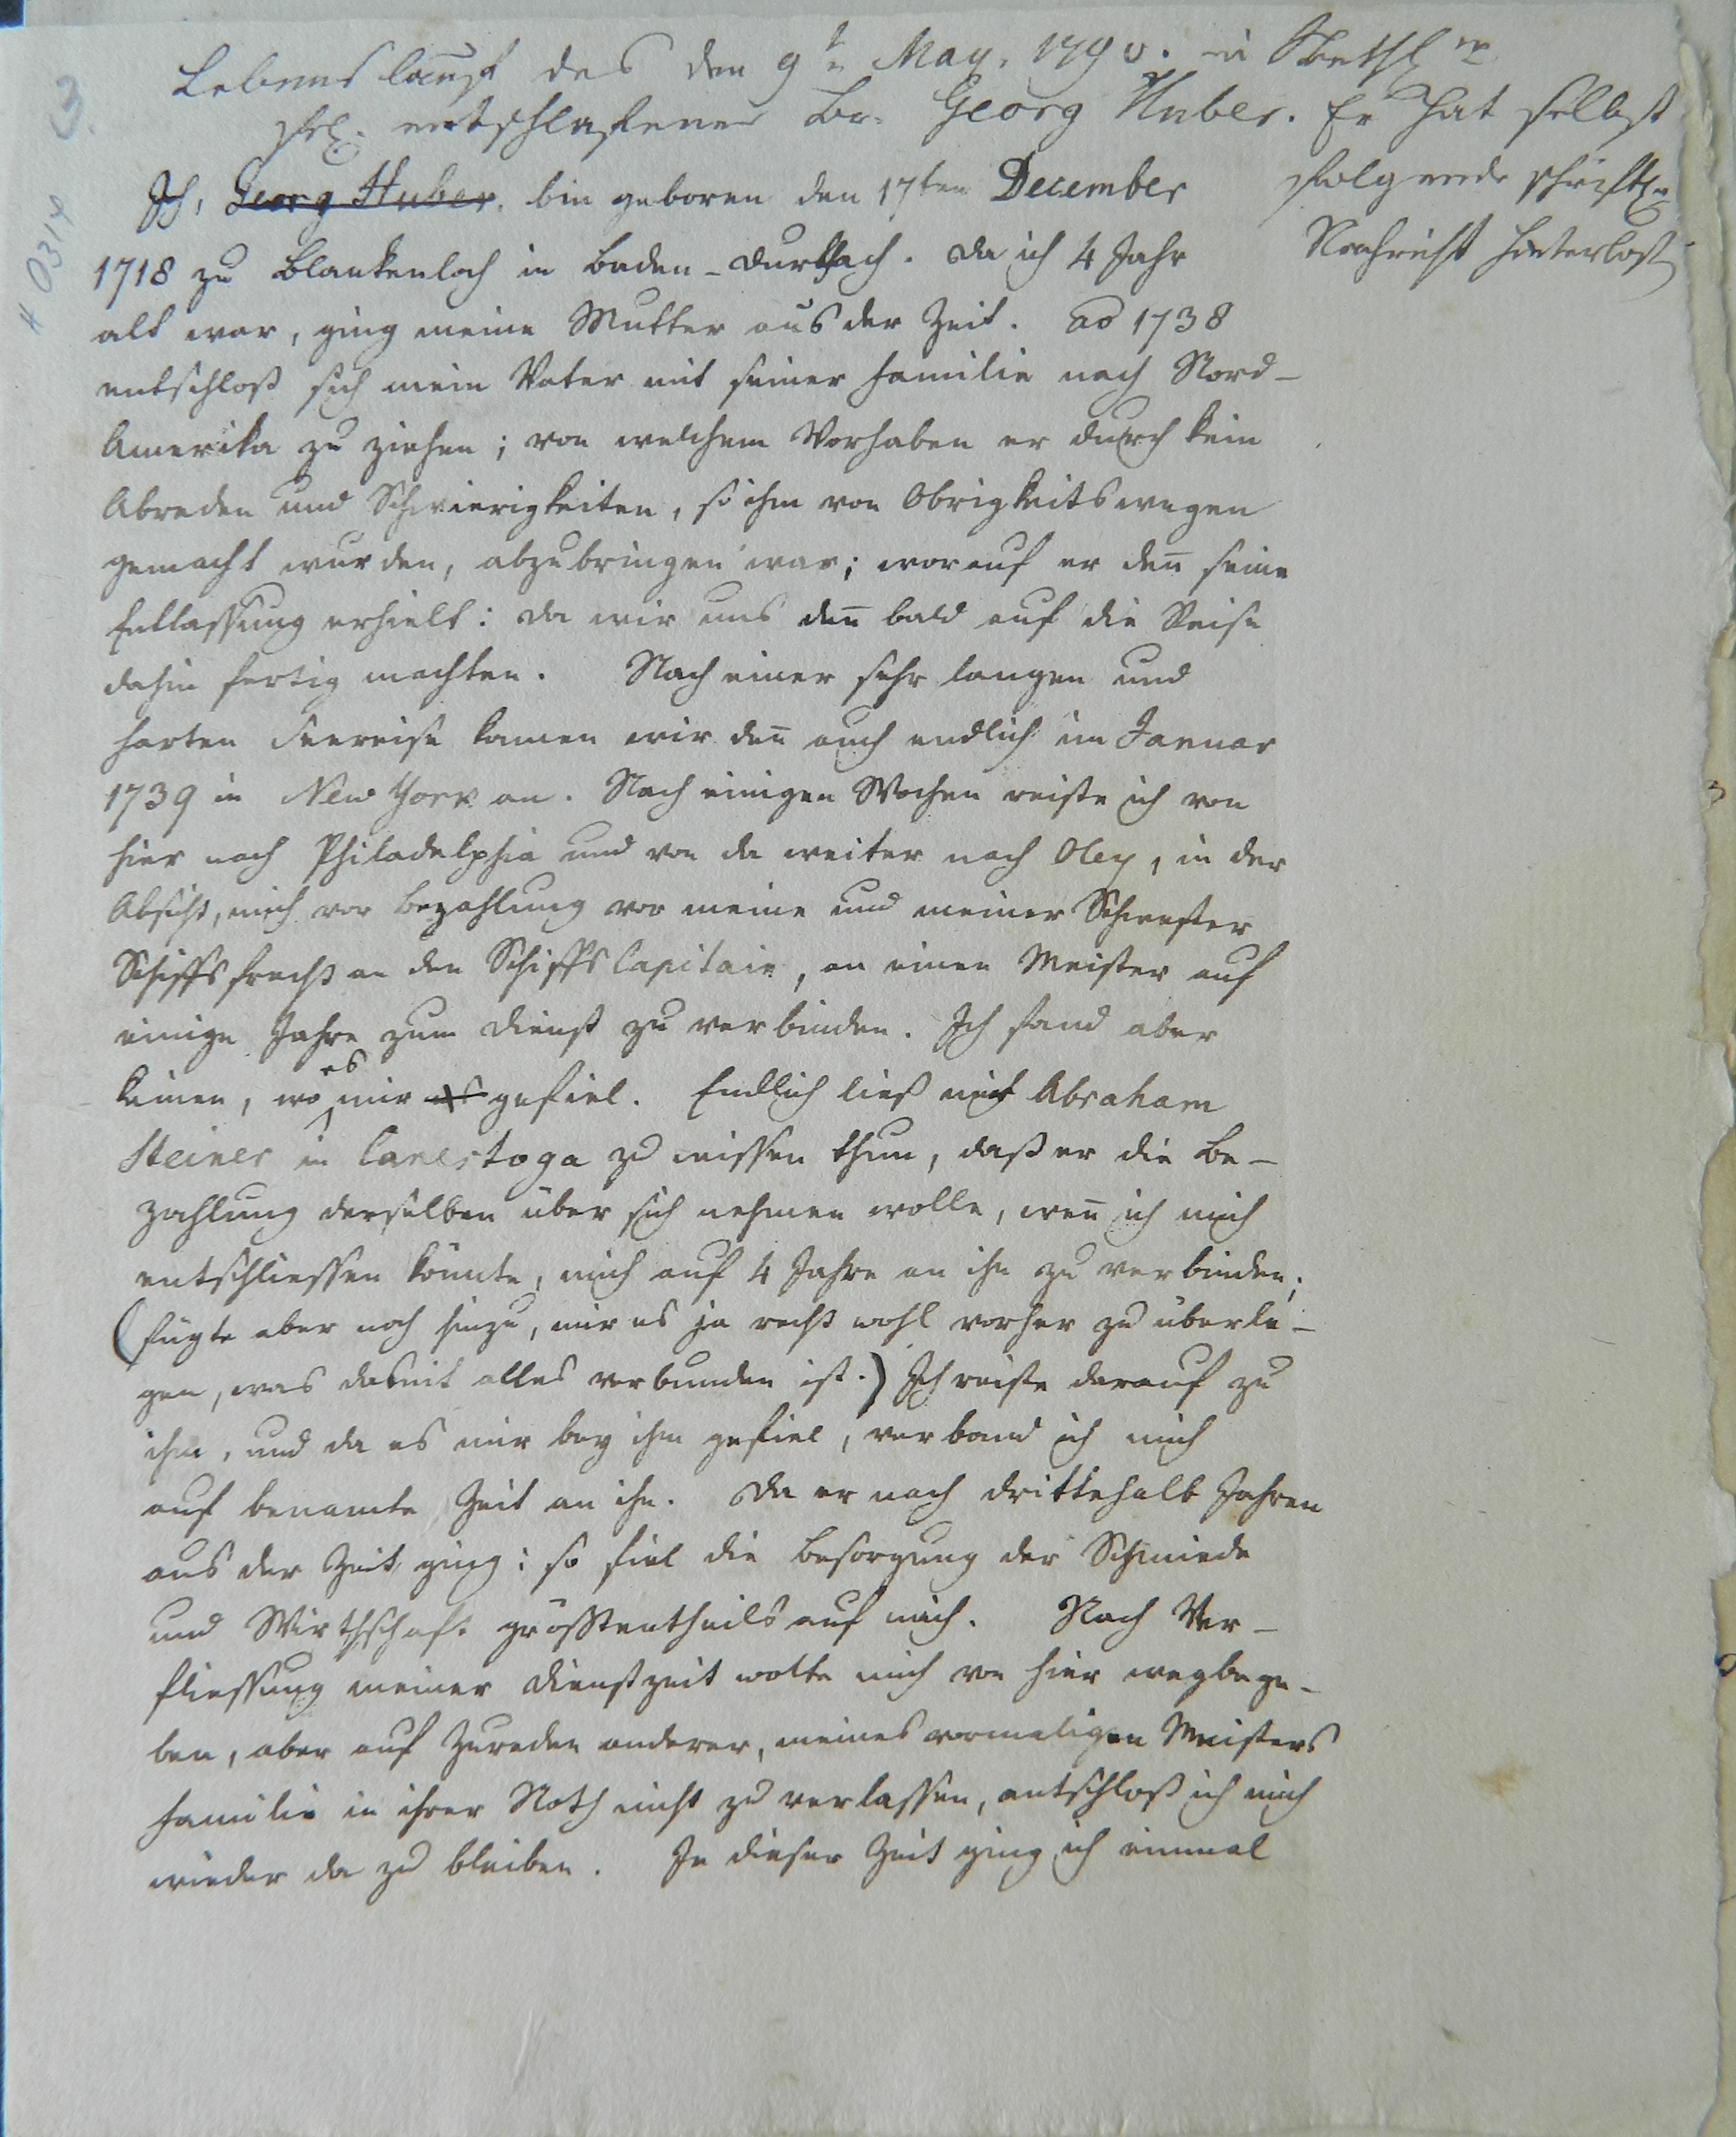 Lebenslauf des den 9t. May. 1790. in Bethl.m
sel. entschlafenen Br. Georg Huber. Er hat selbst
folgende schriftl.
Nachricht hinterlaß
Ich, Georg Huber, bin geboren den 17ten December
1718 zu Blankenloch in Baden-Durlach. Da ich 4 Jahr
alt war, ging meine Mutter aus der Zeit. ao 1738
entschloß sich mein Vater mit seiner Familie nach Nord-
Amerika zu ziehen; von welchem Vorhaben er durch kein
Abreden und Schwierigkeiten, so ihm von Obrigkeitswegen
gemacht wurden, abzubringen war; worauf er den̄ seine
Entlassung erhielt: da wir uns den̄ bald auf die Reise
dahin fertig machten. Nach einer sehr langen und
harten Seereise kamen wir den̄ auch endlich im Januar
1739 in New York an. Nach einigen Wochen reiste ich von
hier nach Philadelphia und von da weiter nach Oley, in der
Absicht, mich vor Bezahlung vor meine und meiner Schwester
Schiffsfracht an den SchiffsCapitain, an einen Meister auf
einige Jahre zum Dienst zu verbinden. Ich fand aber
keinen, wo es mir es gefiel. Endlich ließ mich Abraham
Steiner in Canestoga zu wissen thun, daß er die Be-
zahlung derselben über sich nehmen wolle, wen̄ ich mich
entschliessen könnte, mich auf 4 Jahre an ihn zu verbinden;
(fügte aber noch hinzu, mir es ja recht wohl vorher zu überle-
gen, was damit alles verbunden ist.) Ich reiste darauf zu
ihm, und da es mir bey ihm gefiel, verband ich mich
auf benamte Zeit an ihn. Da er nach drittehalb Jahren
aus der Zeit ging: so fiel die Besorgung der Schmiede
und Wirthschaft größtentheils auf mich. Nach Ver-
fliessung meiner Dienstzeit wolte mich von hier wegbege-
ben, aber auf Zureden anderer, meines vormaligen Meisters
Familie in ihrer Noth nicht zu verlassen, entschloß ich mich
wieder da zu bleiben. In dieser Zeit ging ich einmal